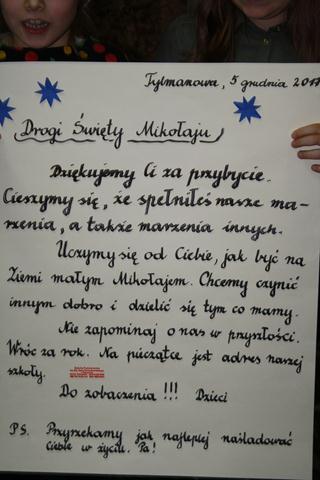 Tylmanowa, 5 grudnia 2017
Drogi Święty Mikołaju
Dziękujemy Ci za przybycie.
Cieszymy się, że spełniłeś nasze ma-
rzenia, a także marzenia innych.
Uczymy się od Ciebie, jak być na
Ziemi małym Mikołajem. Chcemy czynić
innym dobro i dzielić się tym co mamy.
Nie zapominaj o nas w przyszłości.
Wróc za rok. Na pieczątce jest adres naszej
szkoły.
Do zobaczenia !!! Dzieci
PS. Przyrzekamy jak najlepiej naśladować
Ciebie w życiu. Pa!